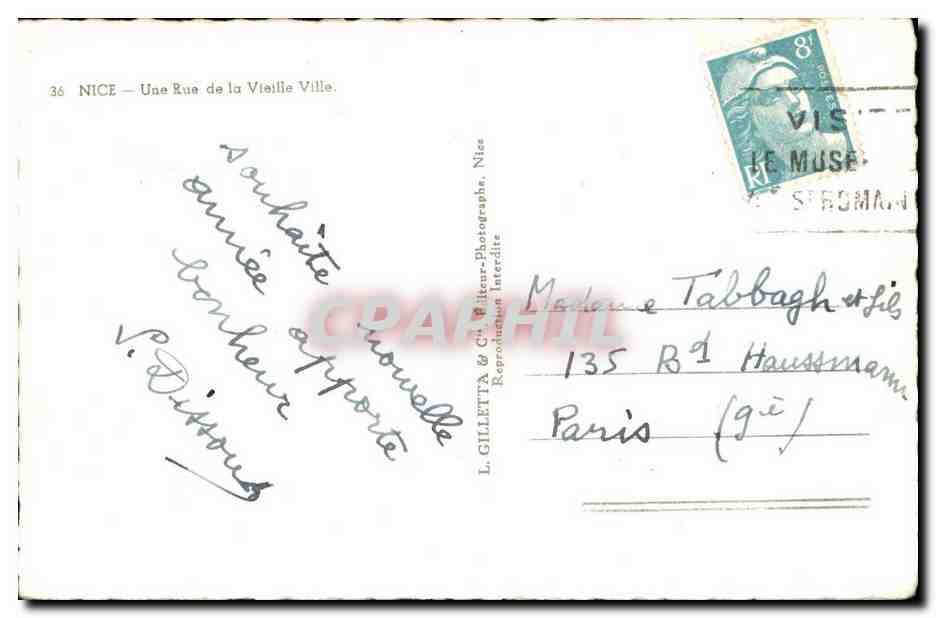 36 NICE — Une Rue de la Vieille Ville.
souhaite nouvelle
année apporte
bonheur
L. GILLETTA & Cie, Editeur-Photographe, Nice
Reproduction Interdite
8f
POSTES
RF
VIS
LE MUSE
ST ROMAIN
Madame Tabbagh et fils
135 Bd Haussmann
Paris (9è)
CPAPHIL